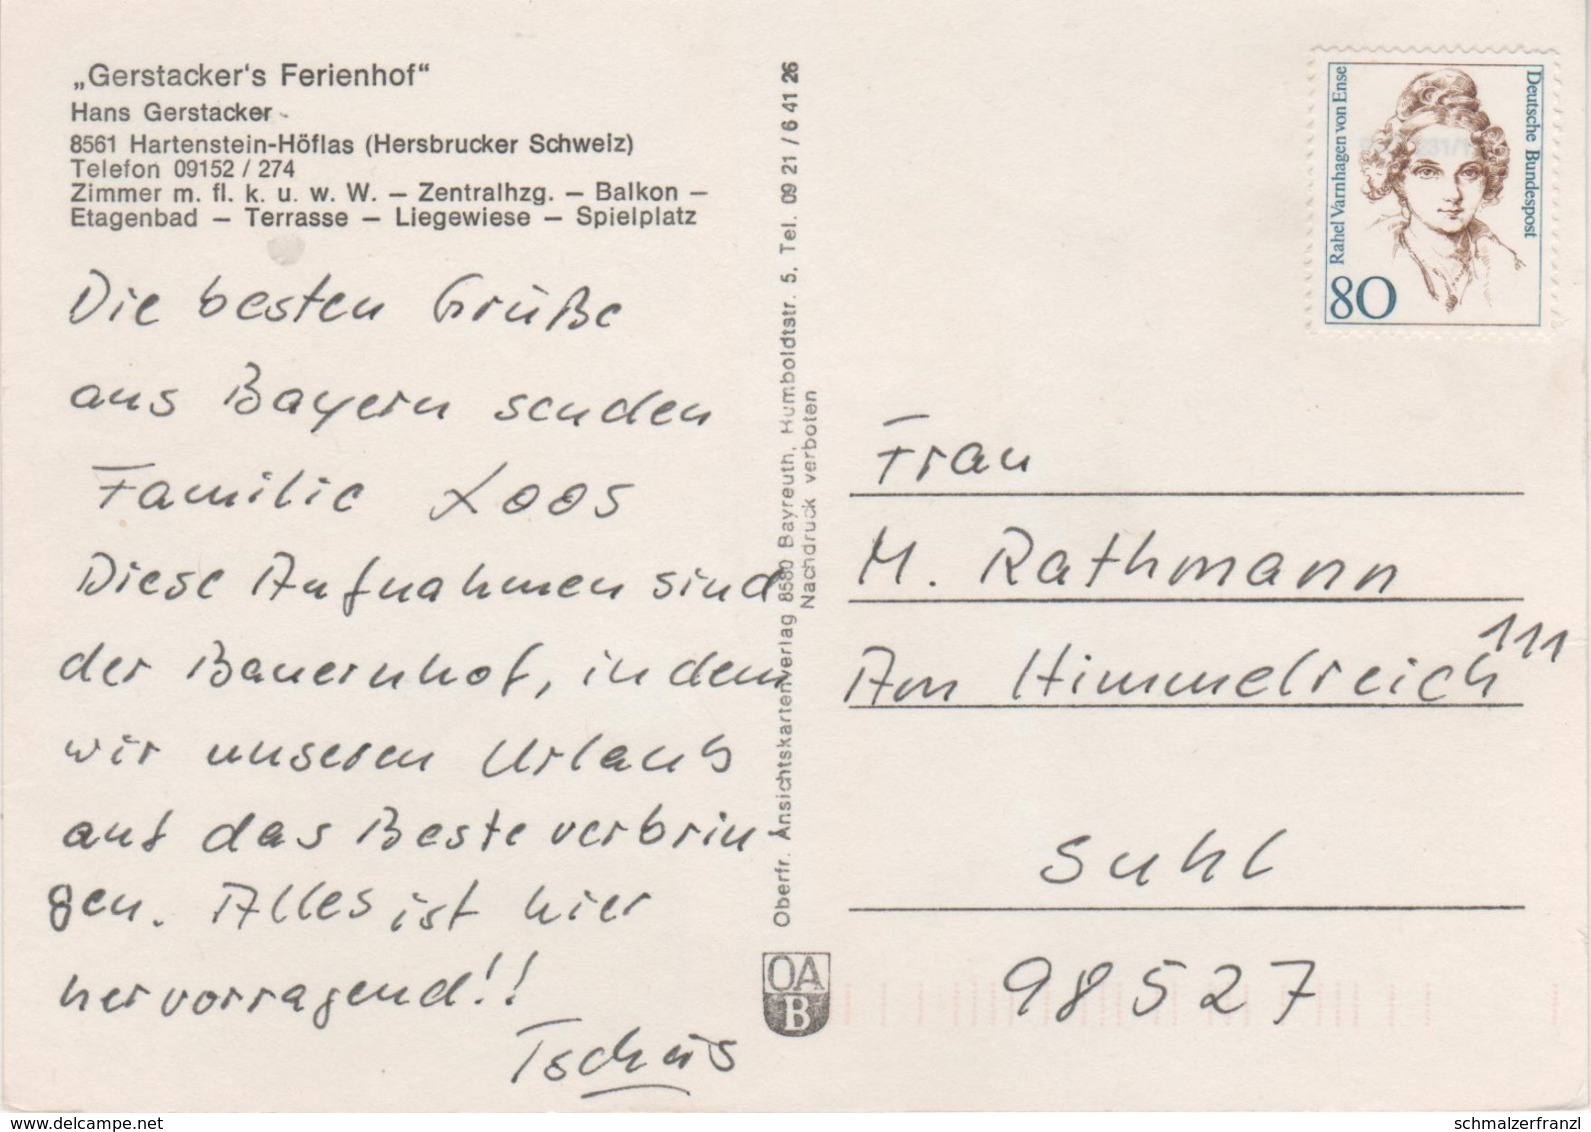 „Gerstacker's Ferienhof“
Hans Gerstacker
8561 Hartenstein-Höflas (Hersbrucker Schweiz)
Telefon 09152 / 274
Zimmer m. fl. k. u. w. W. — Zentralhzg. — Balkon —
Etagenbad — Terrasse — Liegewiese — Spielplatz
Die besten Grüße
aus Bayern senden
Familie Loos
Diese Aufnahmen sind
der Bauernhof, in dem
wir unseren Urlaub
auf das Beste verbrin-
gen. Alles ist hier
hervorragend!!
Tschüs
Oberfr. Ansichtskartenverlag 8580 Bayreuth, Humboldtstr. 5, Tel. 09 21 / 6 41 26
Nachdruck verboten
OA
B
Rahel Varnhagen von Ense
Deutsche Bundespost
80
Frau
M. Rathmann
Am Himmelreich 111
Suhl
98527
www.delcampe.net
schmalzerfranzl